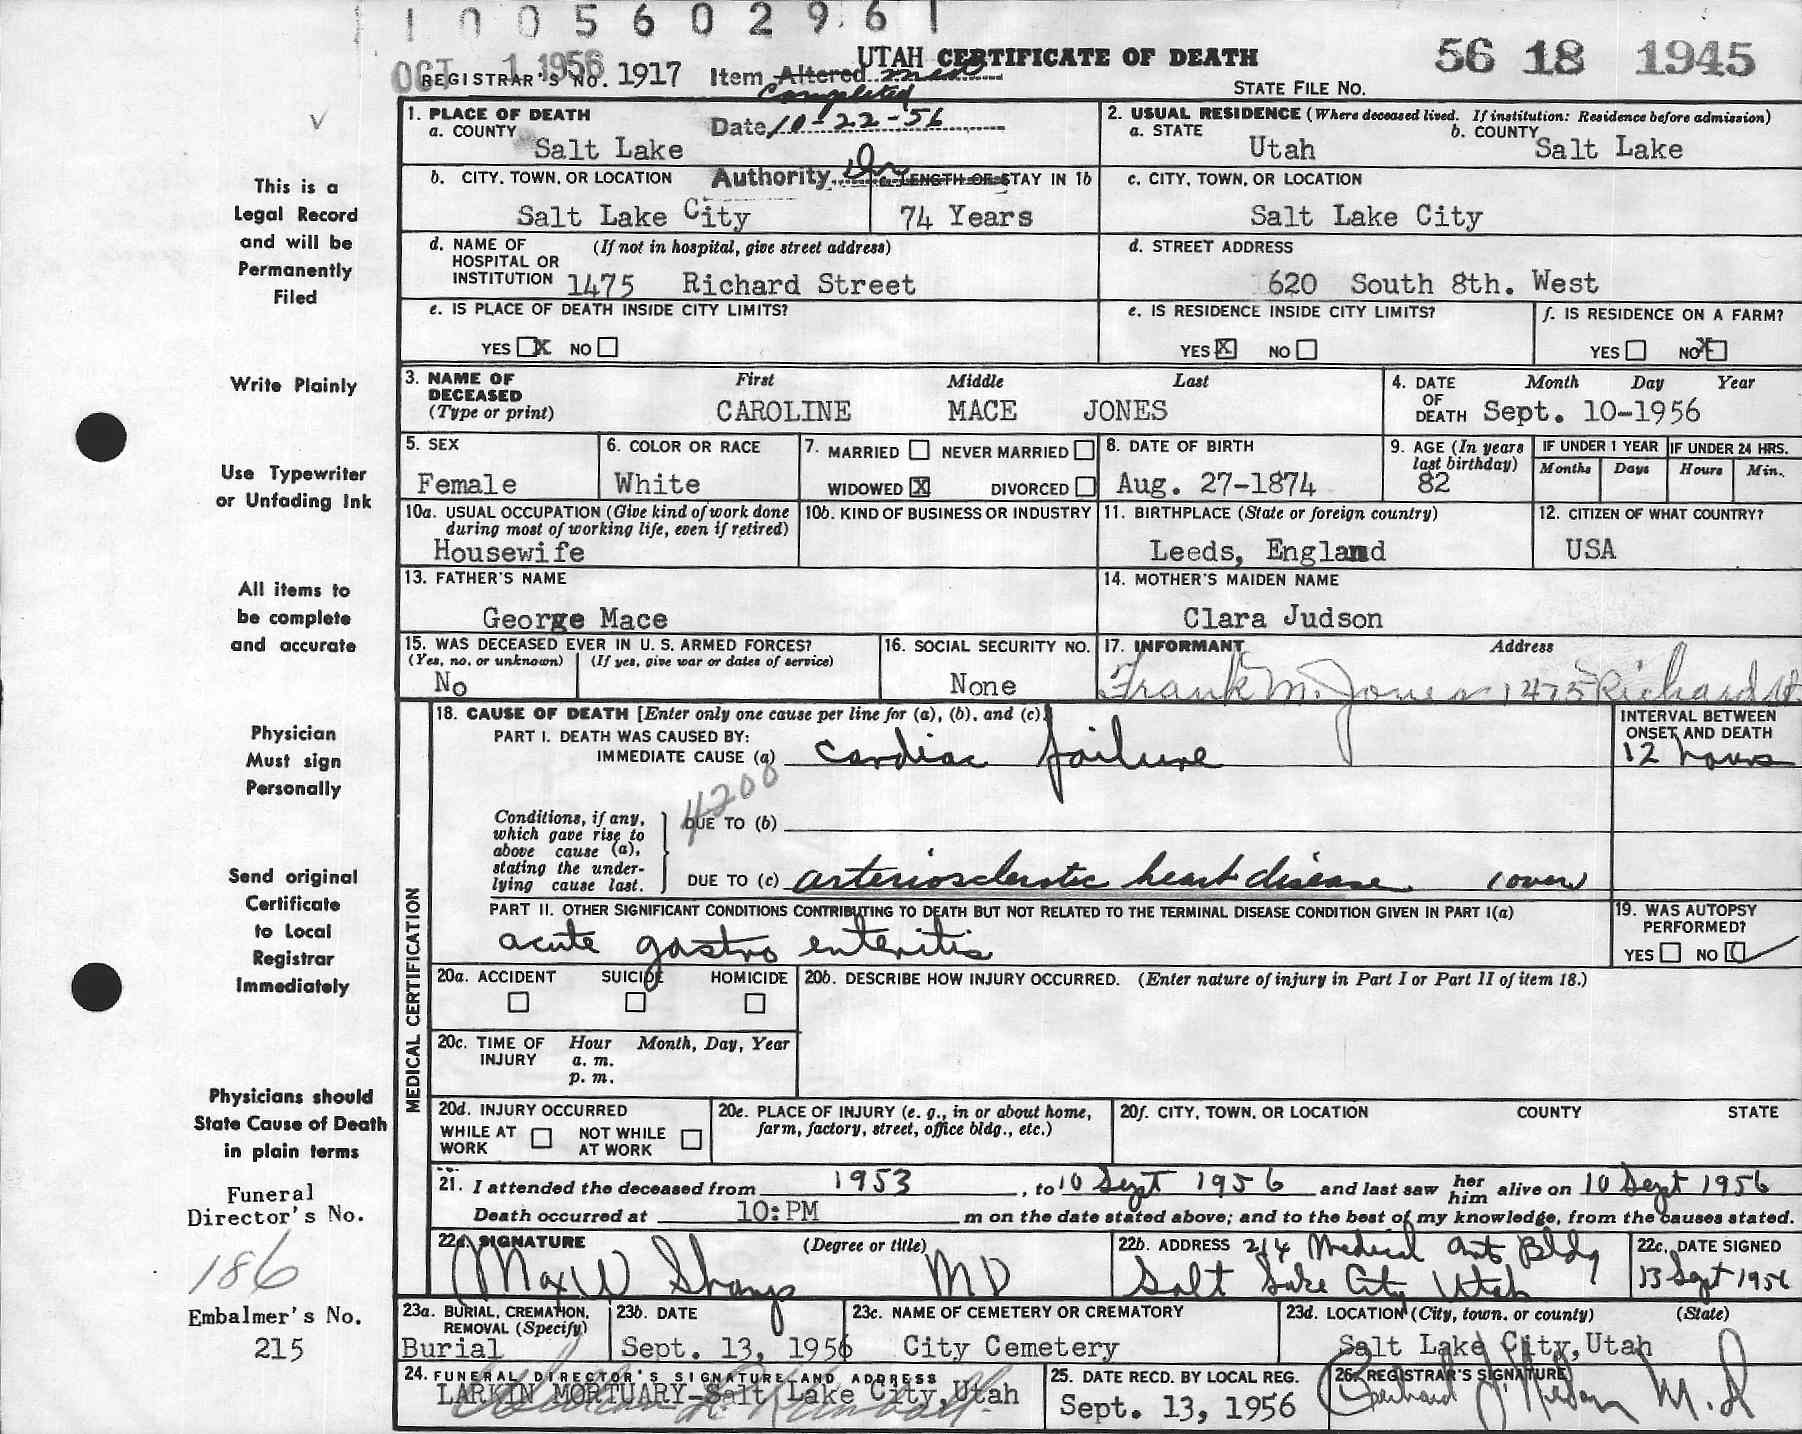 1 0 0 5 6 0 2 9 6 1
UTAH CERTIFICATE OF DEATH
56 18 1945
OCT 1 1956
REGISTRAR'S NO. 1917
Item Altered med
completed
STATE FILE NO.
Date 10-22-56
Authority Dr
1. PLACE OF DEATH
a. COUNTY
Salt Lake
2. USUAL RESIDENCE (Where deceased lived. If institution: Residence before admission)
a. STATE b. COUNTY
Utah Salt Lake
b. CITY, TOWN, OR LOCATION
c. LENGTH OF STAY IN 1b
Salt Lake City 74 Years
c. CITY, TOWN, OR LOCATION
Salt Lake City
d. NAME OF HOSPITAL OR INSTITUTION (If not in hospital, give street address)
1475 Richard Street
d. STREET ADDRESS
620 South 8th. West
e. IS PLACE OF DEATH INSIDE CITY LIMITS?
YES X NO
e. IS RESIDENCE INSIDE CITY LIMITS?
YES X NO
f. IS RESIDENCE ON A FARM?
YES NO X
3. NAME OF DECEASED (Type or print)
First Middle Last
CAROLINE MACE JONES
4. DATE OF DEATH
Month Day Year
Sept. 10-1956
5. SEX
Female
6. COLOR OR RACE
White
7. MARRIED NEVER MARRIED
WIDOWED X DIVORCED
8. DATE OF BIRTH
Aug. 27-1874
9. AGE (In years last birthday)
82
IF UNDER 1 YEAR
Months Days
IF UNDER 24 HRS.
Hours Min.
10a. USUAL OCCUPATION (Give kind of work done during most of working life, even if retired)
Housewife
10b. KIND OF BUSINESS OR INDUSTRY
11. BIRTHPLACE (State or foreign country)
Leeds, England
12. CITIZEN OF WHAT COUNTRY?
USA
13. FATHER'S NAME
George Mace
14. MOTHER'S MAIDEN NAME
Clara Judson
15. WAS DECEASED EVER IN U. S. ARMED FORCES?
(Yes, no. or unknown) (If yes, give war or dates of service)
No
16. SOCIAL SECURITY NO.
None
17. INFORMANT Address
Frank M. Jones 1475 Richard St
18. CAUSE OF DEATH [Enter only one cause per line for (a), (b), and (c).]
PART I. DEATH WAS CAUSED BY:
IMMEDIATE CAUSE (a) cardiac failure
INTERVAL BETWEEN ONSET AND DEATH
12 hours
4200
Conditions, if any, which gave rise to above cause (a), stating the underlying cause last.
DUE TO (b)
DUE TO (c) arteriosclerotic heart disease (over)
PART II. OTHER SIGNIFICANT CONDITIONS CONTRIBUTING TO DEATH BUT NOT RELATED TO THE TERMINAL DISEASE CONDITION GIVEN IN PART I(a)
acute gastro enteritis
19. WAS AUTOPSY PERFORMED?
YES NO
20a. ACCIDENT SUICIDE HOMICIDE
20b. DESCRIBE HOW INJURY OCCURRED. (Enter nature of injury in Part I or Part II of item 18.)
20c. TIME OF INJURY
Hour Month, Day, Year
a. m.
p. m.
20d. INJURY OCCURRED
WHILE AT WORK NOT WHILE AT WORK
20e. PLACE OF INJURY (e. g., in or about home, farm, factory, street, office bldg., etc.)
20f. CITY, TOWN, OR LOCATION COUNTY STATE
MEDICAL CERTIFICATION
21. I attended the deceased from 1953, to 10 Sept 1956 and last saw her him alive on 10 Sept 1956
Death occurred at 10:PM m on the date stated above; and to the best of my knowledge, from the causes stated.
22a. SIGNATURE (Degree or title)
Max W Sharp MD
22b. ADDRESS 214 Medical Arts Bldg
Salt Lake City Utah
22c. DATE SIGNED
13 Sept 1956
23a. BURIAL, CREMATION, REMOVAL (Specify)
Burial
23b. DATE
Sept. 13, 1956
23c. NAME OF CEMETERY OR CREMATORY
City Cemetery
23d. LOCATION (City, town, or county) (State)
Salt Lake City, Utah
24. FUNERAL DIRECTOR'S SIGNATURE AND ADDRESS
LARKIN MORTUARY-Salt Lake City, Utah
25. DATE RECD. BY LOCAL REG.
Sept. 13, 1956
26. REGISTRAR'S SIGNATURE
M.D
This is a
Legal Record
and will be
Permanently
Filed
Write Plainly
Use Typewriter
or Unfading Ink
All items to
be complete
and accurate
Physician
Must sign
Personally
Send original
Certificate
to Local
Registrar
Immediately
Physicians should
State Cause of Death
in plain terms
Funeral
Director's No.
186
Embalmer's No.
215